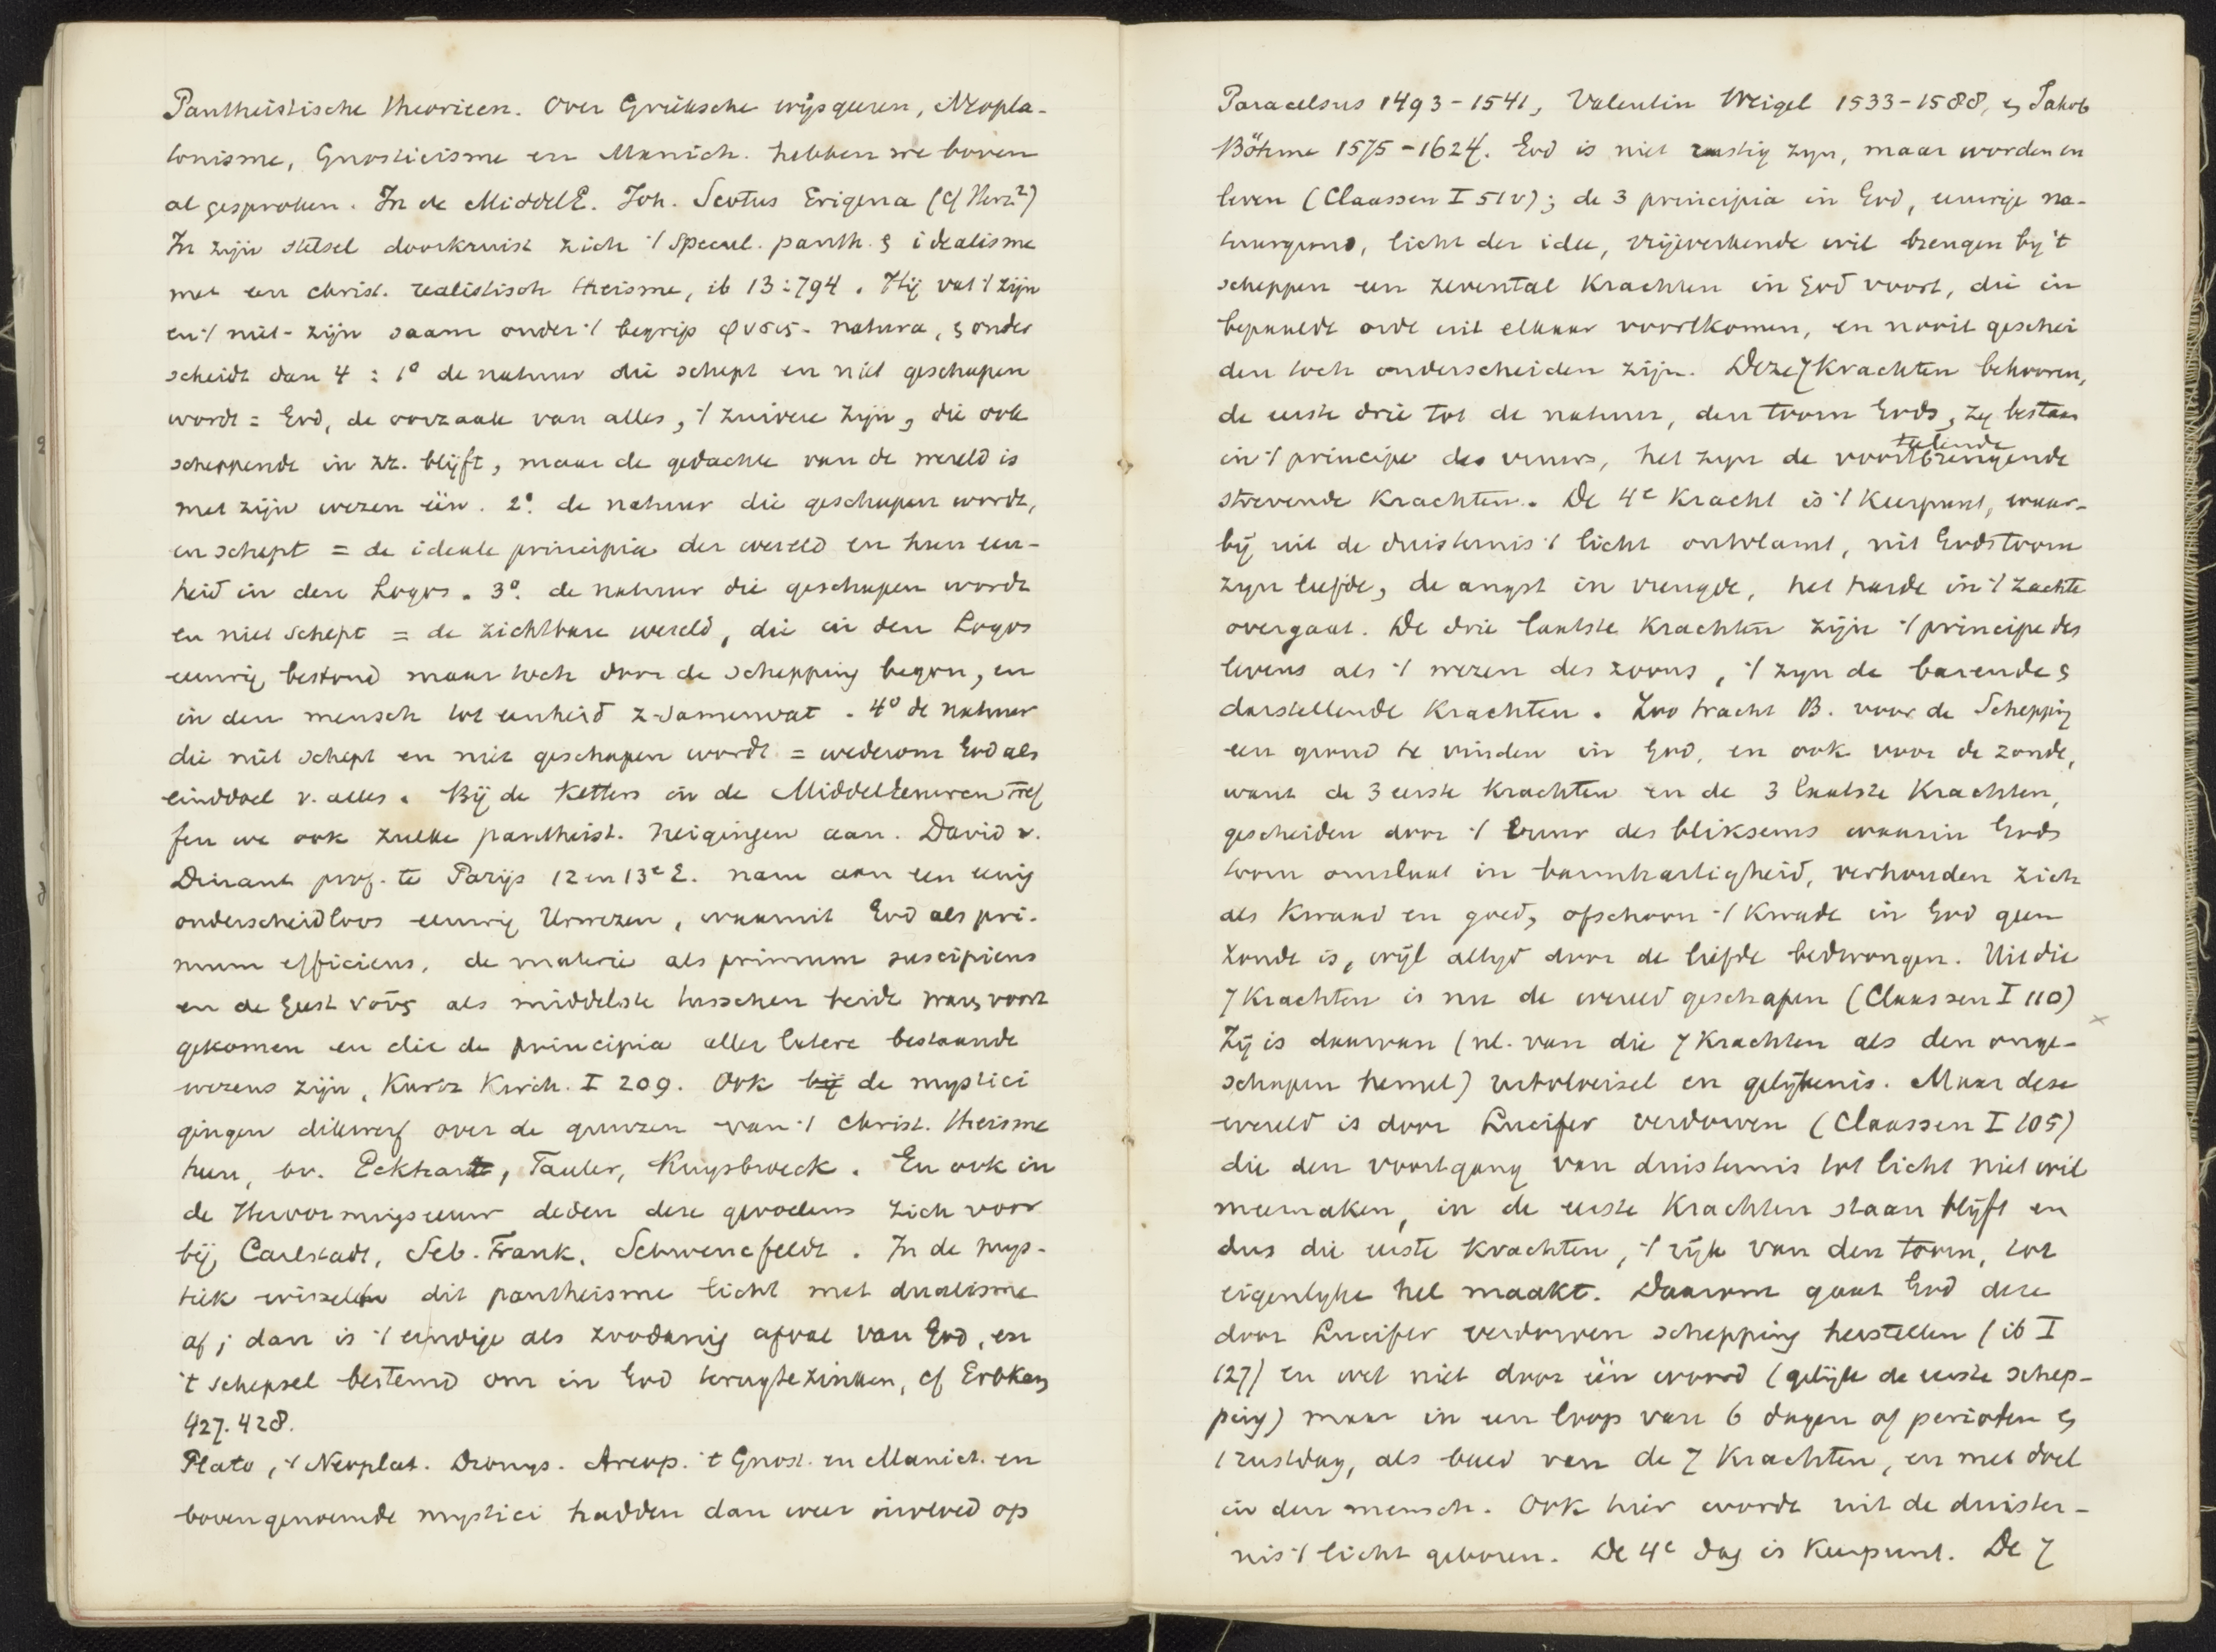 Pantheistische theorieen. Over Grieksche wijsgeeren, Neopla-
tonisme, Gnosticisme en Manich. hebben we boven
al gesproken. In de MiddelE. Joh. Scotus Erigena (cf Herz²)
In zijn stelsel doorkruist zich 't specul. panth. & idealisme
met een christ. realistisch theisme, ib 13:794. Hij vat 't zijn
en 't niet-zijn saam onder 't begrip φυσις - natura, & onder
scheidt dan 4: 1° de natuur die schept en niet geschapen
wordt = God, de oorzaak van alles, 't zuivere zijn, die ook
scheppende in zz. blijft, maar de gedachte van de wereld is
met zijn wezen één. 2° de natuur die geschapen wordt,
en schept = de ideale principia der wereld en hun een-
heid in den Logos. 3° de natuur die geschapen wordt
en niet schept = de zichtbare wereld, die in den Logos
eeuwig bestond maar toch door de schepping begon, en
in den mensch tot eenheid z. samenvat. 4° de natuur
die niet schept en niet geschapen wordt = wederom God als
einddoel v. alles. Bij de Ketters in de Middeleeuwen tref
fen we ook zulke pantheist. neigingen aan. David v.
Dinant prof. te Parijs 12 en 13e E. nam aan een eenig
onderscheidloos eeuwig Urwezen, waaruit God als pri-
mum efficiens, de materie als primum suscipiens
en de Geest νοῦς als middelste tusschen beide was voort
gekomen en die de principia aller latere bestaande
wezens zijn, Kurtz Kirch. I 209. Ook bij de mystici
gingen dikwerf over de grenzen van 't Christ. theisme
heen, bv. Eckhart, Tauler, Ruysbroeck. En ook in
de Hervormingseeuw deden deze gevoelens zich voor
bij Carlstadt, Seb. Frank, Schwenckfeldt. In de mys-
tiek wisselde dit pantheisme licht met dualisme
af; dan is 't eindige als zoodanig afval van God, en
't schepsel bestemd om in God terugtezinken, cf Erbkam
427. 428.
Plato, 't Neoplat. Dionys. Areop. 't Gnost. en Manich. en
bovengenoemde mystici hadden dan weer invloed op
Paracelsus 1493-1541, Valentin Weigel 1533-1588, & Jakob
Böhme 1575-1624. God is niet rustig zijn, maar worden en
leven (Claassen I 51v); de 3 principia in God, eeuwige na-
tuurgrond, licht der idee, vrijewerkende wil brengen bij 't
scheppen een zevental Krachten in God voort, die in
bepaalde orde uit elkaar voortkomen, en nooit geschei
den toch onderscheiden zijn. Deze 7 Krachten behooren,
de eerste drie tot de natuur, den toorn Gods, zij bestaan
in 't principe des vuurs, het zijn de voortbrengende
telende
strevende Krachten. De 4e Kracht is 't Keerpunt, waar-
bij uit de duisternis 't licht ontvlamt, uit Godstoorn
zijn liefde, de angst in vreugde, het harde in 't zachte
overgaat. De drie laatste Krachten zijn 't principe des
levens als 't wezen des zoons, 't zijn de barende &
darstellende Krachten. Zoo tracht B. voor de Schepping
een grond te vinden in God, en ook voor de zonde,
want de 3 eerste Krachten en de 3 laatste Krachten,
gescheiden door 't vuur des bliksems waarin Gods
toorn omslaat in barmhartigheid, verhouden zich
als Kwaad en goed, ofschoon 't Kwade in God geen
zonde is, wijl altijd door de liefde bedwongen. Uit die
7 Krachten is nu de wereld geschapen (Claassen I 110)
Zij is daarvan (nl. van die 7 Krachten als den onge-
schapen hemel) uitvloeisel en gelijkenis. Maar deze
wereld is door Lucifer verdorven (Claassen I 105)
die den voortgang van duisternis tot licht niet wil
meemaken, in de eerste Krachten staan blijft en
dus die eerste Krachten, 't rijk van den toorn, tot
eigenlijke hel maakt. Daarom gaat God deze
door Lucifer verdorven schepping herstellen (ib I
127) en wel niet door één woord (gelijk de eerste schep-
ping) maar in een loop van 6 dagen of perioden &
1 rustdag, als beeld van de 7 Krachten, en met doel
in den mensch. Ook hier wordt uit de duister-
nis 't licht geboren. De 4e dag is Keerpunt. De 7